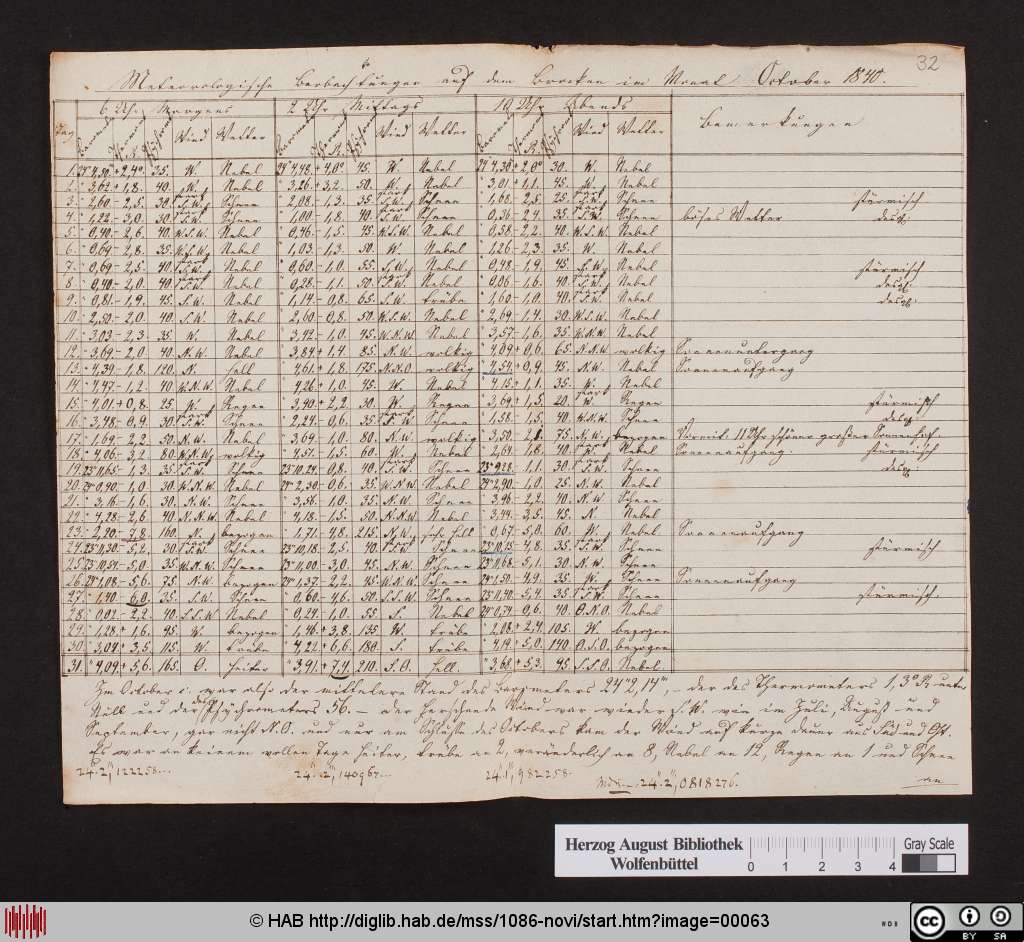 32
Meteorologische Beobachtungen auf dem Brocken im Monat October 1840.
Tag 6 Uhr Morgens 2 Uhr Mittags 10 Uhr Abends Bemerkungen
Wind Wetter Wind Wetter Wind Wetter
1. 24" 4,30 + 2,4° 35. W. Nebel 24" 4,48 + 4,0° 45. W Nebel 24" 4,30 + 2,0° 30. W. Nebel
2. " 3,62 + 1,8. 40. W. Nebel " 3,26 + 3,2. 50. W. Nebel " 3,01 + 1,1. 45. W Nebel
3. " 2,60 - 2,5. 30. S.W. Schnee " 2,08 - 1,3. 35 S.W. Schnee " 1,68 - 2,5. 25. S.W. Schnee stürmisch
4. " 1,22 - 3,0. 30. S.W. Schnee " 1,00 - 1,8. 40. S.W. Schnee " 0,36 - 2,4. 35. S.W. Schnee böses Wetter desgl.
5. " 0,40 - 2,6. 40. W.S.W. Nebel " 0,46 - 1,5. 45 W.S.W. Nebel " 0,58 - 2,2. 40. W.S.W. Nebel
6. " 0,64 - 2,8. 35. W.S.W. Nebel " 1,03 - 1,3. 50. W. Nebel " 1,26 - 2,3. 35. W. Nebel
7. " 0,69 - 2,5. 40. S.W. Nebel " 0,60 - 1,0. 55. S.W. Nebel " 0,48 - 1,9. 45. S.W. Nebel stürmisch
8. " 0,40 - 2,0. 40 S.W. Nebel " 0,28 - 1,1. 50. S.W. Nebel " 0,06 - 1,6. 40. S.W. Nebel desgl.
9. " 0,81 - 1,9. 45. S.W. Nebel " 1,14 - 0,8. 65. S.W. trübe " 1,60 - 1,0. 40. S.W. Nebel desgl.
10. " 2,50 - 2,0. 40. S.W. Nebel " 2,60 - 0,8. 50. W.S.W. Nebel " 2,69 - 1,4. 30. W.S.W. Nebel
11. " 3,03 - 2,3. 35. W. Nebel " 3,42 - 1,0. 45. W.N.W. Nebel " 3,57 - 1,6. 35. W.N.W. Nebel
12. " 3,69 - 2,0. 40. N.W. Nebel " 3,84 + 1,4. 85. N.W. wolkig " 4,09 + 0,6. 65. N.N.W. wolkig Sonnenuntergang
13. " 4,39 - 1,8. 120. N. hell " 4,61 + 1,8. 175. N.N.O. wolkig " 4,54 + 0,9. 45. N.W. Nebel Sonnenaufgang
14. " 4,47 - 1,2. 40. W.N.W. Nebel " 4,26 + 1,0. 45. W. Nebel " 4,15 + 1,1. 35. W. Nebel
15. " 4,01 + 0,8. 25. W. Regen " 3,90 + 2,2. 30. W. Regen " 3,69 + 1,5. 20. W. Regen stürmisch
16. " 3,48 - 0,9. 30. S.W. Schnee " 2,24 - 0,6. 35. S.W. Schnee " 1,58 - 1,5. 40. W.N.W. Schnee desgl.
17. " 1,69 - 2,2. 50. N.W. Nebel " 3,69 - 1,0. 80. N.W. wolkig " 3,50 - 2,1. 75. N.W. bezogen Vormit. 11 Uhr schöner großer Sonnenhof.
18. " 4,06 - 3,2. 80. W.N.W. wolkig " 4,51 - 1,5. 60. W. Nebel " 2,64 - 1,8. 40. W. Nebel Sonnenaufgang. stürmisch
19. 23" 11,65 - 1,3. 35. S.W. Schnee 23" 10,24 - 0,8. 40. S.W. Schnee 23" 9,28 - 1,1. 30. S.W. Schnee desgl.
20. 24" 0,90 - 1,0. 30. W.N.W. Nebel 24" 2,30 - 0,6. 35. W.N.W. Nebel 24" 2,90 - 1,0. 25. N.W. Nebel
21. " 3,16 - 1,6. 30. N.W. Schnee " 3,56 - 1,0. 35. N.W. Schnee " 3,96 - 2,2. 40. N.W. Schnee
22. " 4,28 - 2,6. 40. N.N.W. Nebel " 4,18 - 1,5. 50. N.N.W. Nebel " 3,44 - 3,5. 45. N. Nebel
23. " 2,20 - 4,8. 160. N. bezogen " 1,71 - 4,8. 215. N.W. sehr hell " 0,67 - 5,0. 60. W. Nebel Sonnenaufgang
24. 23" 11,30 - 5,2. 30. S.W. Schnee 23" 10,18 - 2,5. 40. S.W. Schnee 23" 10,25 - 4,8. 35. S.W. Schnee stürmisch
25. 23" 10,54 - 5,0. 35. W.N.W. Schnee 23" 11,00 - 3,0. 45. N.W. Schnee 23" 11,68 - 5,1. 30. N.W. Schnee
26. 24" 1,08 - 5,6. 75. N.W. bezogen 24" 1,37 - 2,2. 45. W.N.W. Schnee 24" 1,50 - 4,9. 35. W. Schnee Sonnenaufgang
27. " 1,40 - 6,0. 35. S.W. Schnee " 0,60 - 4,6. 50. S.S.W. Schnee 23" 11,40 - 5,4. 35. S.W. Schnee stürmisch.
28. " 0,02 - 2,2. 40. S.S.W. Nebel " 0,24 - 1,0. 55. S. Nebel 24" 0,74 - 0,6. 40. O.N.O. Nebel
29. " 1,28 + 1,6. 45. W. bezogen " 1,46 + 3,8. 135. W. trübe " 2,08 + 2,4. 105. W. bezogen
30. " 3,04 + 3,5. 115. W. trübe " 4,22 + 6,6. 180. S. trübe " 4,19 + 5,0. 140. O.S.O. bezogen
31. " 4,09 + 5,6. 165. O. heiter " 3,91 + 7,4. 210. S.O. hell. " 3,68 + 5,3. 45. S.S.O. Nebel
Im October c. war also der mittlere Stand des Barometers 24" 2,14"', - der des Thermometers 1,3° R. unter
Null und der des Psychrometers 56. - der herrschende Wind war wieder S.W. wie im Juli, August und
September, gar nicht N.O. und nur am Schlusse des Octobers kam der Wind auf kurze Dauer aus Süd und Ost.
Es war an keinem vollen Tage heiter, trübe an 2, veränderlich an 8, Nebel an 12, Regen an 1 und Schnee
an
24".2"',122258... 24".2"',140967... 24".1"',982258. 24".2"',0818276.
Herzog August Bibliothek
Wolfenbüttel
0 1 2 3 4
Gray Scale
© HAB http://diglib.hab.de/mss/1086-novi/start.htm?image=00063
WDB
cc BY SA